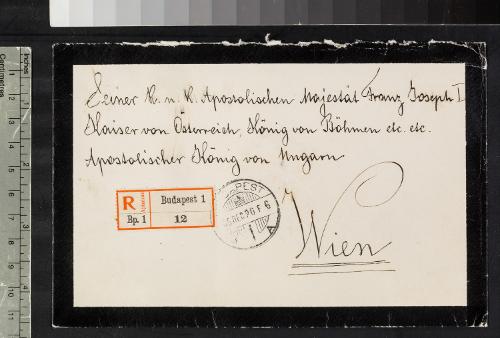 Seiner K. u. K. Apostolischen Majestät Franz Joseph I
Kaiser von Österreich, König von Böhmen etc. etc.
Apostolischer König von Ungarn
Wien
R
Budapest 1
Bp. 1
12
Inches
Centimetres